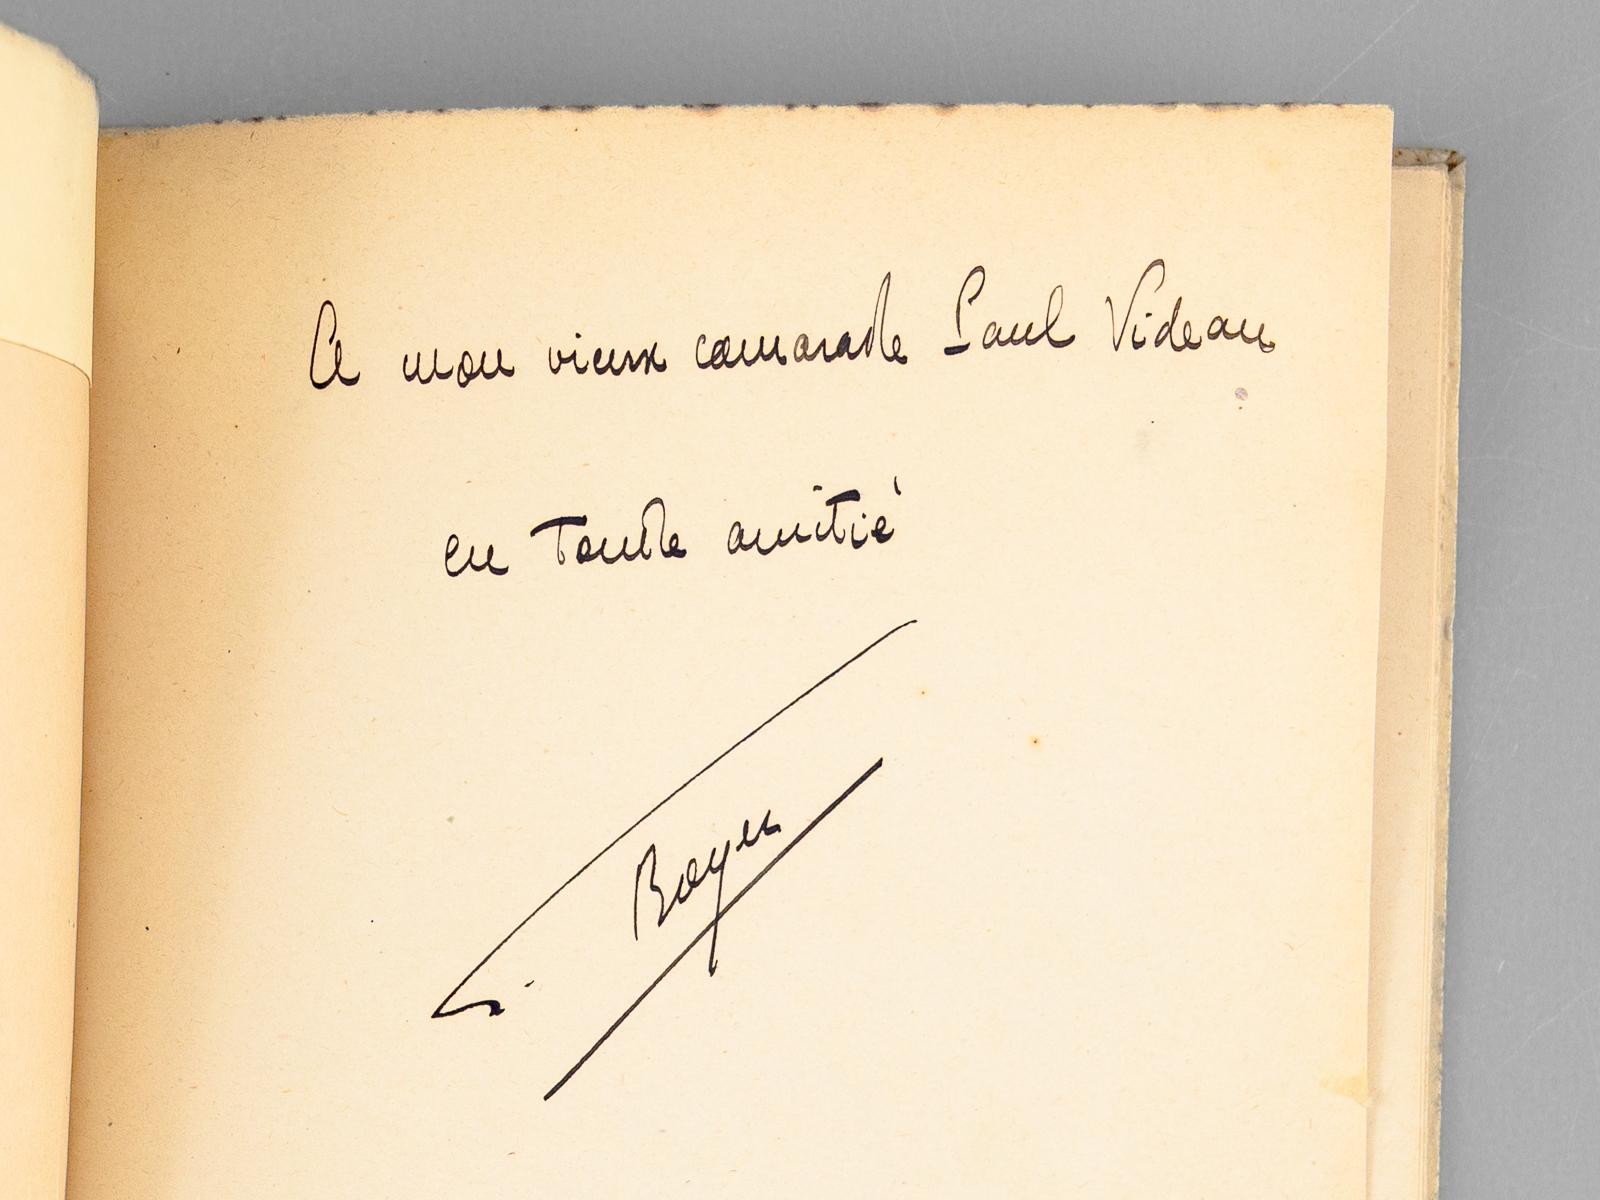 A mon vieux camarade Paul Videau
en toute amitié
Boyer